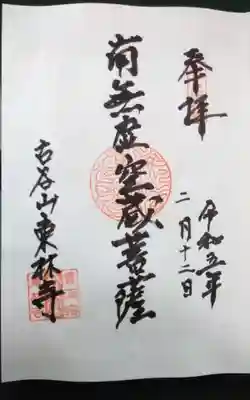 奉拝
令和五年
二月十二日
南無虚空蔵菩薩
古谷山東林寺